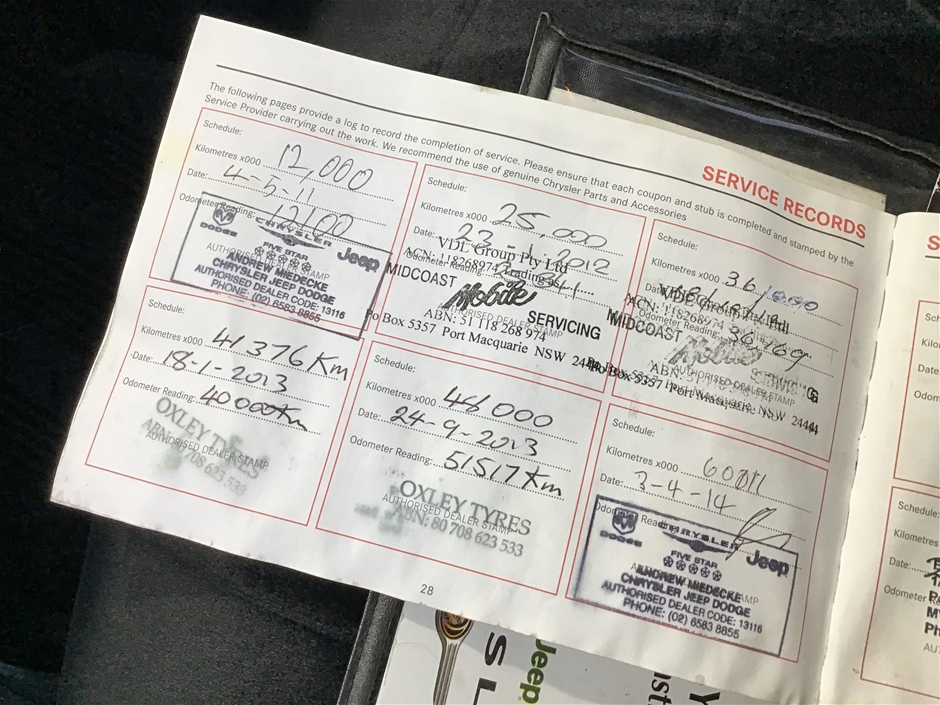 SERVICE RECORDS
The following pages provide a log to record the completion of service. Please ensure that each coupon and stub is completed and stamped by the
Service Provider carrying out the work. We recommend the use of genuine Chrysler Parts and Accessories
Schedule:
Kilometres x000 12,000
Date: 4-5-11
Odometer Reading: 12100
DODGE CHRYSLER Jeep
FIVE STAR
AUTHORISED DEALER STAMP
ANDREW MIEDECKE
CHRYSLER JEEP DODGE
AUTHORISED DEALER CODE: 13116
PHONE: (02) 6583 8855
Schedule:
Kilometres x000 25,000
Date: 23-1-2012
VDL Group Pty Ltd
ACN: 118268974
Odometer Reading:
MIDCOAST Mobile SERVICING
AUTHORISED DEALER STAMP
ABN: 51 118 268 974
Po Box 5357 Port Macquarie NSW 2444
Schedule:
Kilometres x000 36,000
Date:
VDL Group Pty Ltd
ACN: 118268974
Odometer Reading: 36769
MIDCOAST Mobile
AUTHORISED DEALER STAMP
ABN:
Po Box 5357 Port Macquarie NSW 2444
Kilometres x000 41376 Km
Date: 18-1-2013
Odometer Reading: 40000Km
OXLEY TYRES
AUTHORISED DEALER STAMP
ABN: 80 708 623 533
Schedule:
Kilometres x000 48000
Date: 24-9-2013
Odometer Reading: 51517 Km
OXLEY TYRES
AUTHORISED DEALER STAMP
ABN: 80 708 623 533
Schedule:
Kilometres x000
Date: 3-4-14
Odometer Reading:
DODGE CHRYSLER Jeep
FIVE STAR
ANDREW MIEDECKE
CHRYSLER JEEP DODGE
AUTHORISED DEALER CODE: 13116
PHONE: (02) 6583 8855
28
Schedule:
Kilometres
Date:
Jeep